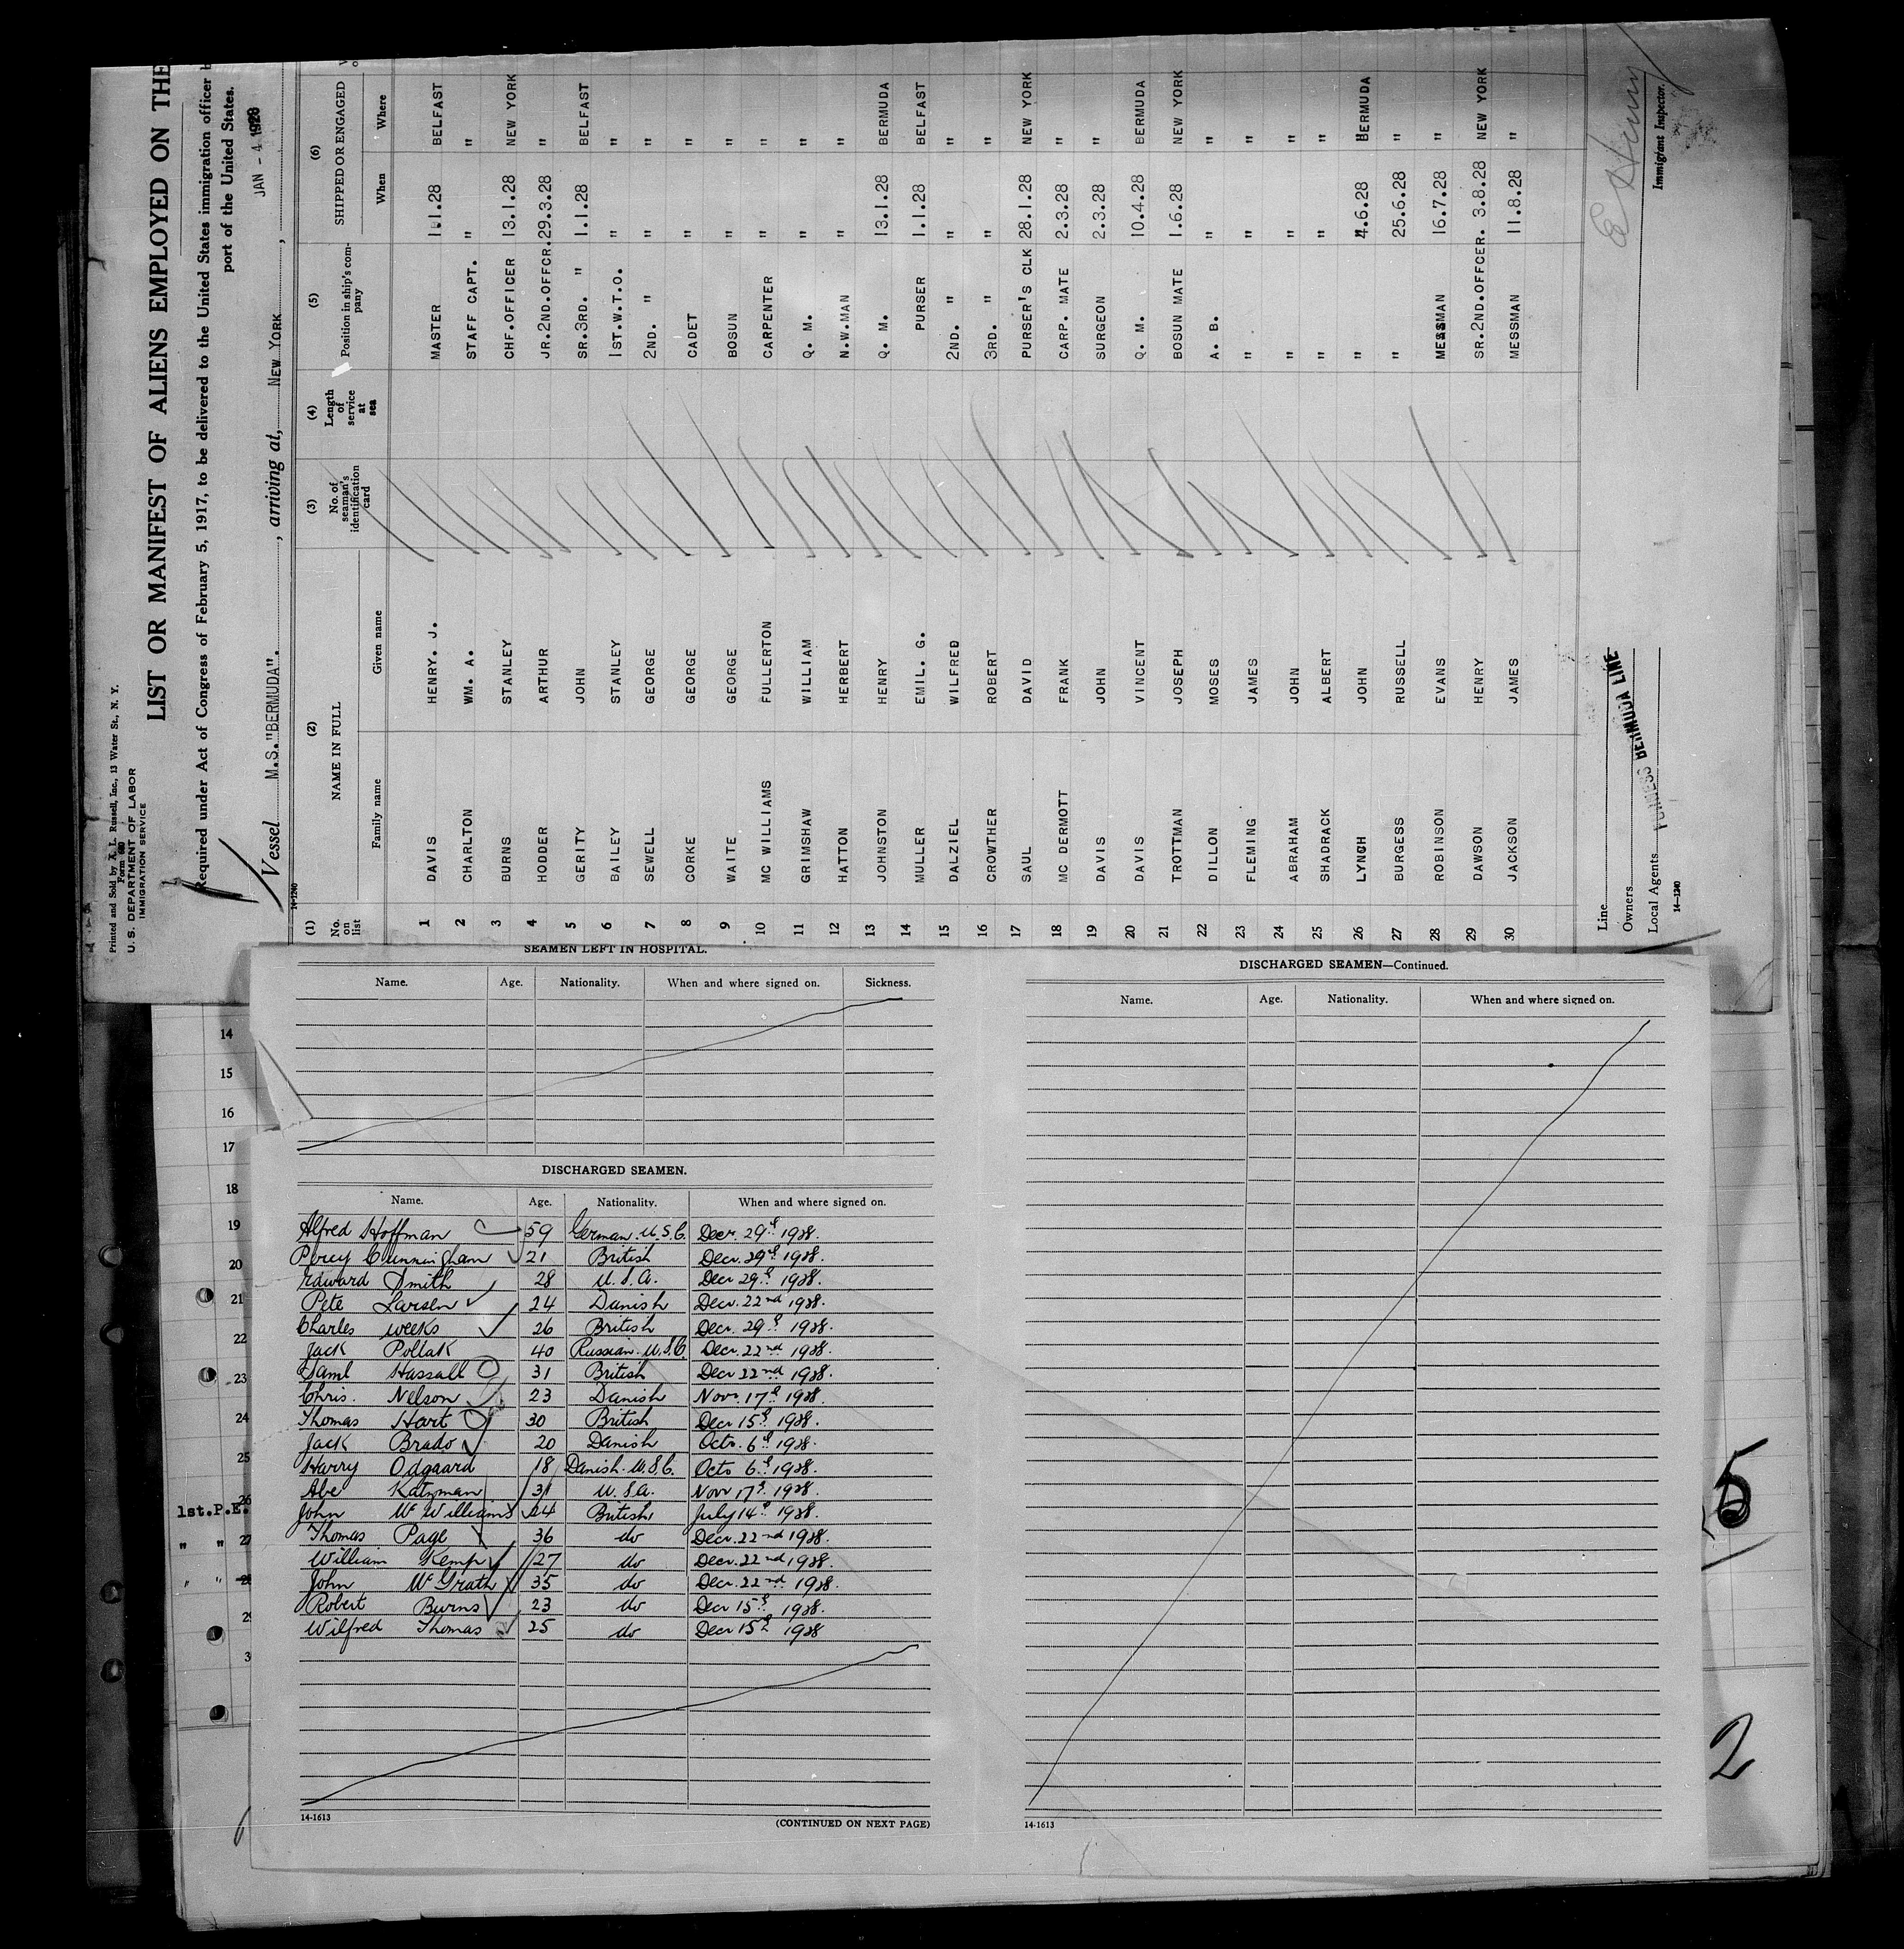 Printed and Sold by A. L. Russell, Inc., 13 Water St., N. Y.
Form 680
U. S. DEPARTMENT OF LABOR
IMMIGRATION SERVICE
LIST OR MANIFEST OF ALIENS EMPLOYED ON THE
Required under Act of Congress of February 5, 1917, to be delivered to the United States immigration officer
port of the United States.
Vessel M.S."BERMUDA". , arriving at, NEW YORK ,
JAN - 4 1929
14-1240
(1) (2) (3) (4) (5) (6)
No. on list NAME IN FULL No. of seaman's identification card Length of service at sea Position in ship's company SHIPPED OR ENGAGED
Family name Given name When Where
1 DAVIS HENRY. J. MASTER 1.1.28 BELFAST
2 CHARLTON WM. A. STAFF CAPT. " "
3 BURNS STANLEY CHF.OFFICER 13.1.28 NEW YORK
4 HODDER ARTHUR JR.2ND.OFFCR. 29.3.28 "
5 GERITY JOHN SR.3RD. " 1.1.28 BELFAST
6 BAILEY STANLEY 1ST.W.T.O. " "
7 SEWELL GEORGE 2ND. " " "
8 CORKE GEORGE CADET " "
9 WAITE GEORGE BOSUN " "
10 MC WILLIAMS FULLERTON CARPENTER " "
11 GRIMSHAW WILLIAM Q. M. " "
12 HATTON HERBERT N.W.MAN " "
13 JOHNSTON HENRY Q. M. 13.1.28 BERMUDA
14 MULLER EMIL. G. PURSER 1.1.28 BELFAST
15 DALZIEL WILFRED 2ND. " " "
16 CROWTHER ROBERT 3RD. " " "
17 SAUL DAVID PURSER'S CLK 28.1.28 NEW YORK
18 MC DERMOTT FRANK CARP. MATE 2.3.28 "
19 DAVIS JOHN SURGEON 2.3.28 "
20 DAVIS VINCENT Q. M. 10.4.28 BERMUDA
21 TROTTMAN JOSEPH BOSUN MATE 1.6.28 NEW YORK
22 DILLON MOSES A. B. " "
23 FLEMING JAMES " " "
24 ABRAHAM JOHN " " "
25 SHADRACK ALBERT " " "
26 LYNCH JOHN " 4.6.28 BERMUDA
27 BURGESS RUSSELL " 25.6.28 "
28 ROBINSON EVANS MESSMAN 16.7.28 "
29 DAWSON HENRY SR.2ND.OFFCER. 3.8.28 NEW YORK
30 JACKSON JAMES MESSMAN 11.8.28 "
Line
Owners
Local Agents
FURNESS BERMUDA LINE
14-1240
Immigrant Inspector.
SEAMEN LEFT IN HOSPITAL.
Name. Age. Nationality. When and where signed on. Sickness.
DISCHARGED SEAMEN.
Name. Age. Nationality. When and where signed on.
Alfred Hoffman 59 German. U.S.C. Decr. 29th 1928.
Percy Cunningham 21 British Decr. 29th 1928.
Edward Smith 28 U.S.A. Decr 29th 1928.
Pete Larsen 24 Danish Decr. 22nd 1928.
Charles Weeks 26 British Decr. 29th 1928.
Jack Pollak 40 Russian. U.S.C. Decr. 22nd 1928.
Saml Hassall 31 British Decr 22nd 1928.
Chris. Nelson 23 Danish Novr. 17th 1928.
Thomas Hart 30 British Decr 15th 1928.
Jack Brado 20 Danish Octr. 6th 1928.
Harry Odgaard 18 Danish. U.S.C. Octr 6th 1928.
Abe Katzman 31 U.S.A. Novr 17th 1928.
John McWilliams 44 British July 14th 1928.
Thomas Page 36 do Decr. 22nd 1928.
William Kemp 27 do Decr. 22nd 1928.
John McGrath 35 do Decr. 22nd 1928.
Robert Burns 23 do Decr 15th 1928.
Wilfred Thomas 25 do Decr 15th 1928
14-1613
(CONTINUED ON NEXT PAGE)
DISCHARGED SEAMEN—Continued.
Name. Age. Nationality. When and where signed on.
14-1613
14
15
16
17
18
19
20
21
22
23
24
25
26
1st.P.E.
" " 27
" " 28
5
2